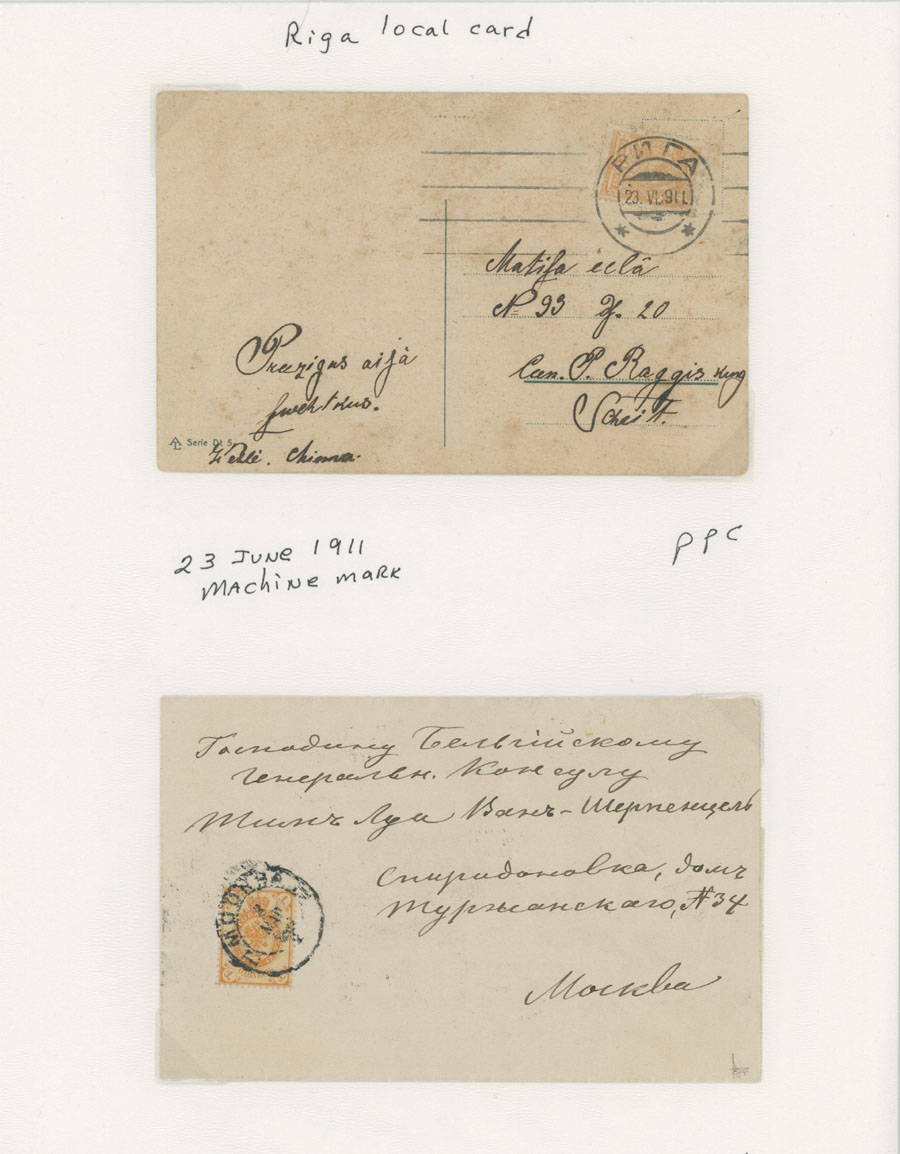 Riga local card
РИГА
23. VI. 911
Matisa eelā
№ 93 Dz. 20
Can. P. Raggis kung
Prezigus
Serie Dt 5
23 June 1911
Machine mark
PPC
Господину Бельгійскому
Генеральн. Консулу
Ванъ-Шерпенцель
Спиридоновка, домъ
Туржанскаго, № 34
МОСКВА
Москва